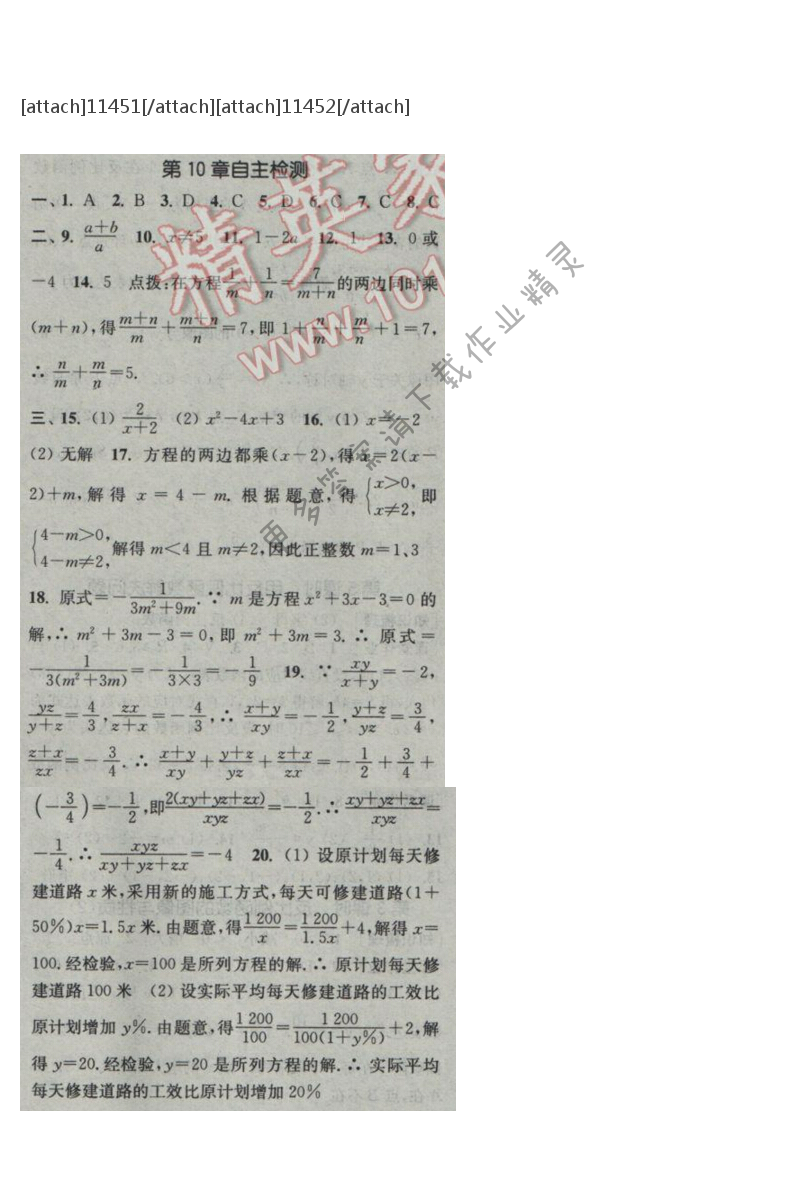 [attach]11451[/attach][attach]11452[/attach]
第 10 章自主检测
一、1. A 2. B 3. D 4. C 5. D 6. C 7. C 8. C
二、9. (a+b)/a 10. x≠5 11. 1-2a 12. 1 13. 0 或
-4 14. 5 点拨:在方程 1/m + 1/n = 7/(m+n) 的两边同时乘
(m+n),得 (m+n)/m + (m+n)/n = 7,即 1 + n/m + m/n + 1 = 7,
∴ n/m + m/n = 5.
三、15. (1) 2/(x+2) (2) x²-4x+3 16. (1) x=-2
(2) 无解 17. 方程的两边都乘(x-2),得 x=2(x-
2)+m,解得 x = 4 - m. 根据题意,得 {x>0, x≠2, 即
{4-m>0, 4-m≠2, 解得 m<4 且 m≠2,因此正整数 m=1、3
18. 原式= - 1/(3m²+9m). ∵ m 是方程 x²+3x-3=0 的
解,∴ m² + 3m - 3 = 0,即 m² + 3m = 3. ∴ 原式 =
- 1/(3(m²+3m)) = - 1/(3×3) = - 1/9 19. ∵ xy/(x+y) = -2,
yz/(y+z) = 4/3, zx/(z+x) = - 4/3, ∴ (x+y)/xy = - 1/2, (y+z)/yz = 3/4,
(z+x)/zx = - 3/4. ∴ (x+y)/xy + (y+z)/yz + (z+x)/zx = - 1/2 + 3/4 +
(-3/4) = - 1/2,即 2(xy+yz+zx)/xyz = - 1/2. ∴ (xy+yz+zx)/xyz =
- 1/4. ∴ xyz/(xy+yz+zx) = -4 20. (1) 设原计划每天修
建道路 x 米,采用新的施工方式,每天可修建道路(1+
50%)x=1.5x 米. 由题意,得 1 200/x = 1 200/1.5x + 4,解得 x=
100. 经检验,x=100 是所列方程的解. ∴ 原计划每天修
建道路 100 米 (2) 设实际平均每天修建道路的工效比
原计划增加 y%. 由题意,得 1 200/100 = 1 200/(100(1+y%)) + 2,解
得 y=20. 经检验,y=20 是所列方程的解. ∴ 实际平均
每天修建道路的工效比原计划增加 20%
精英家
www.101
更多答案请下载作业精灵